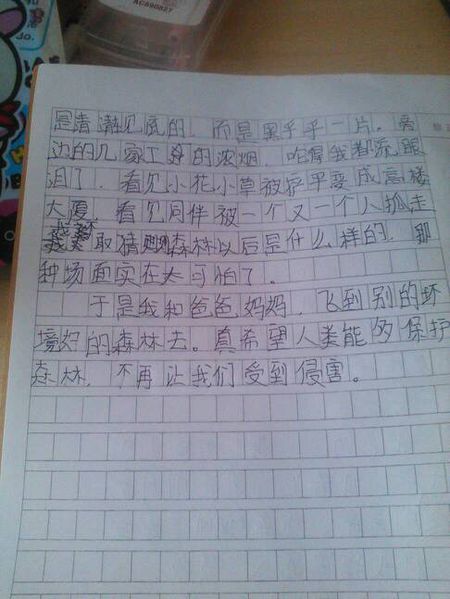 AC690827
是清澈见底的，而是黑乎乎一片。旁
边的几家工厂的浓烟，呛得我都流眼
泪了，看见小花小草被铲平变成高楼
大厦，看见同伴被一个又一个人抓走
我不敢猜森林以后是什么样的，那
种场面实在太可怕了。
于是我和爸爸妈妈，飞到别的环
境好的森林去。真希望人类能多保护
森林，不再让我们受到侵害。